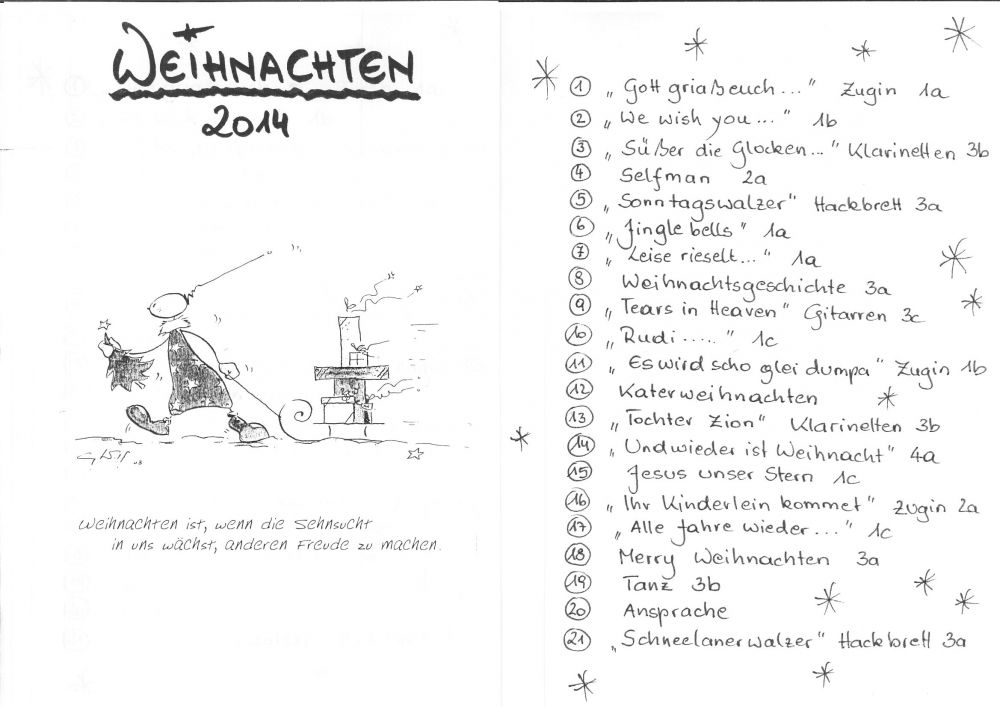 WEIHNACHTEN
2014
Weihnachten ist, wenn die Sehnsucht
in uns wächst, anderen Freude zu machen.
① „Gott griaß euch..." Zugin 1a
② „We wish you..." 1b
③ „Süßer die Glocken..." Klarinetten 3b
④ Selfman 2a
⑤ „Sonntagswalzer" Hackbrett 3a
⑥ „Jingle bells" 1a
⑦ „Leise rieselt..." 1a
⑧ Weihnachtsgeschichte 3a
⑨ „Tears in Heaven" Gitarren 3c
⑩ „Rudi....." 1c
⑪ „Es wird scho glei dumpa" Zugin 1b
⑫ Katerweihnachten
⑬ „Tochter Zion" Klarinetten 3b
⑭ „Und wieder ist Weihnacht" 4a
⑮ Jesus unser Stern 1c
⑯ „Ihr Kinderlein kommet" Zugin 2a
⑰ „Alle Jahre wieder..." 1c
⑱ Merry Weihnachten 3a
⑲ Tanz 3b
⑳ Ansprache
㉑ „Schneelanerwalzer" Hackbrett 3a